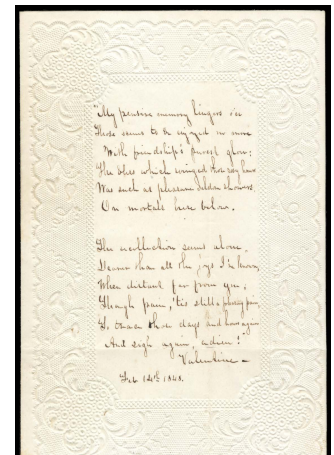 "My pensive memory lingers o'er
Those scenes to be enjoyed no more
With friendship's purest glow;
The bliss which winged those rosy hours
Was such as pleasure seldom showers
On mortals here below.
The recollection seems alone
Dearer than all the joys I've known,
When distant far from you;
Though pain, 'tis still a pleasing pain
To trace those days and hours again
And sigh again, adieu!
Valentine
Feb 14th 1848.